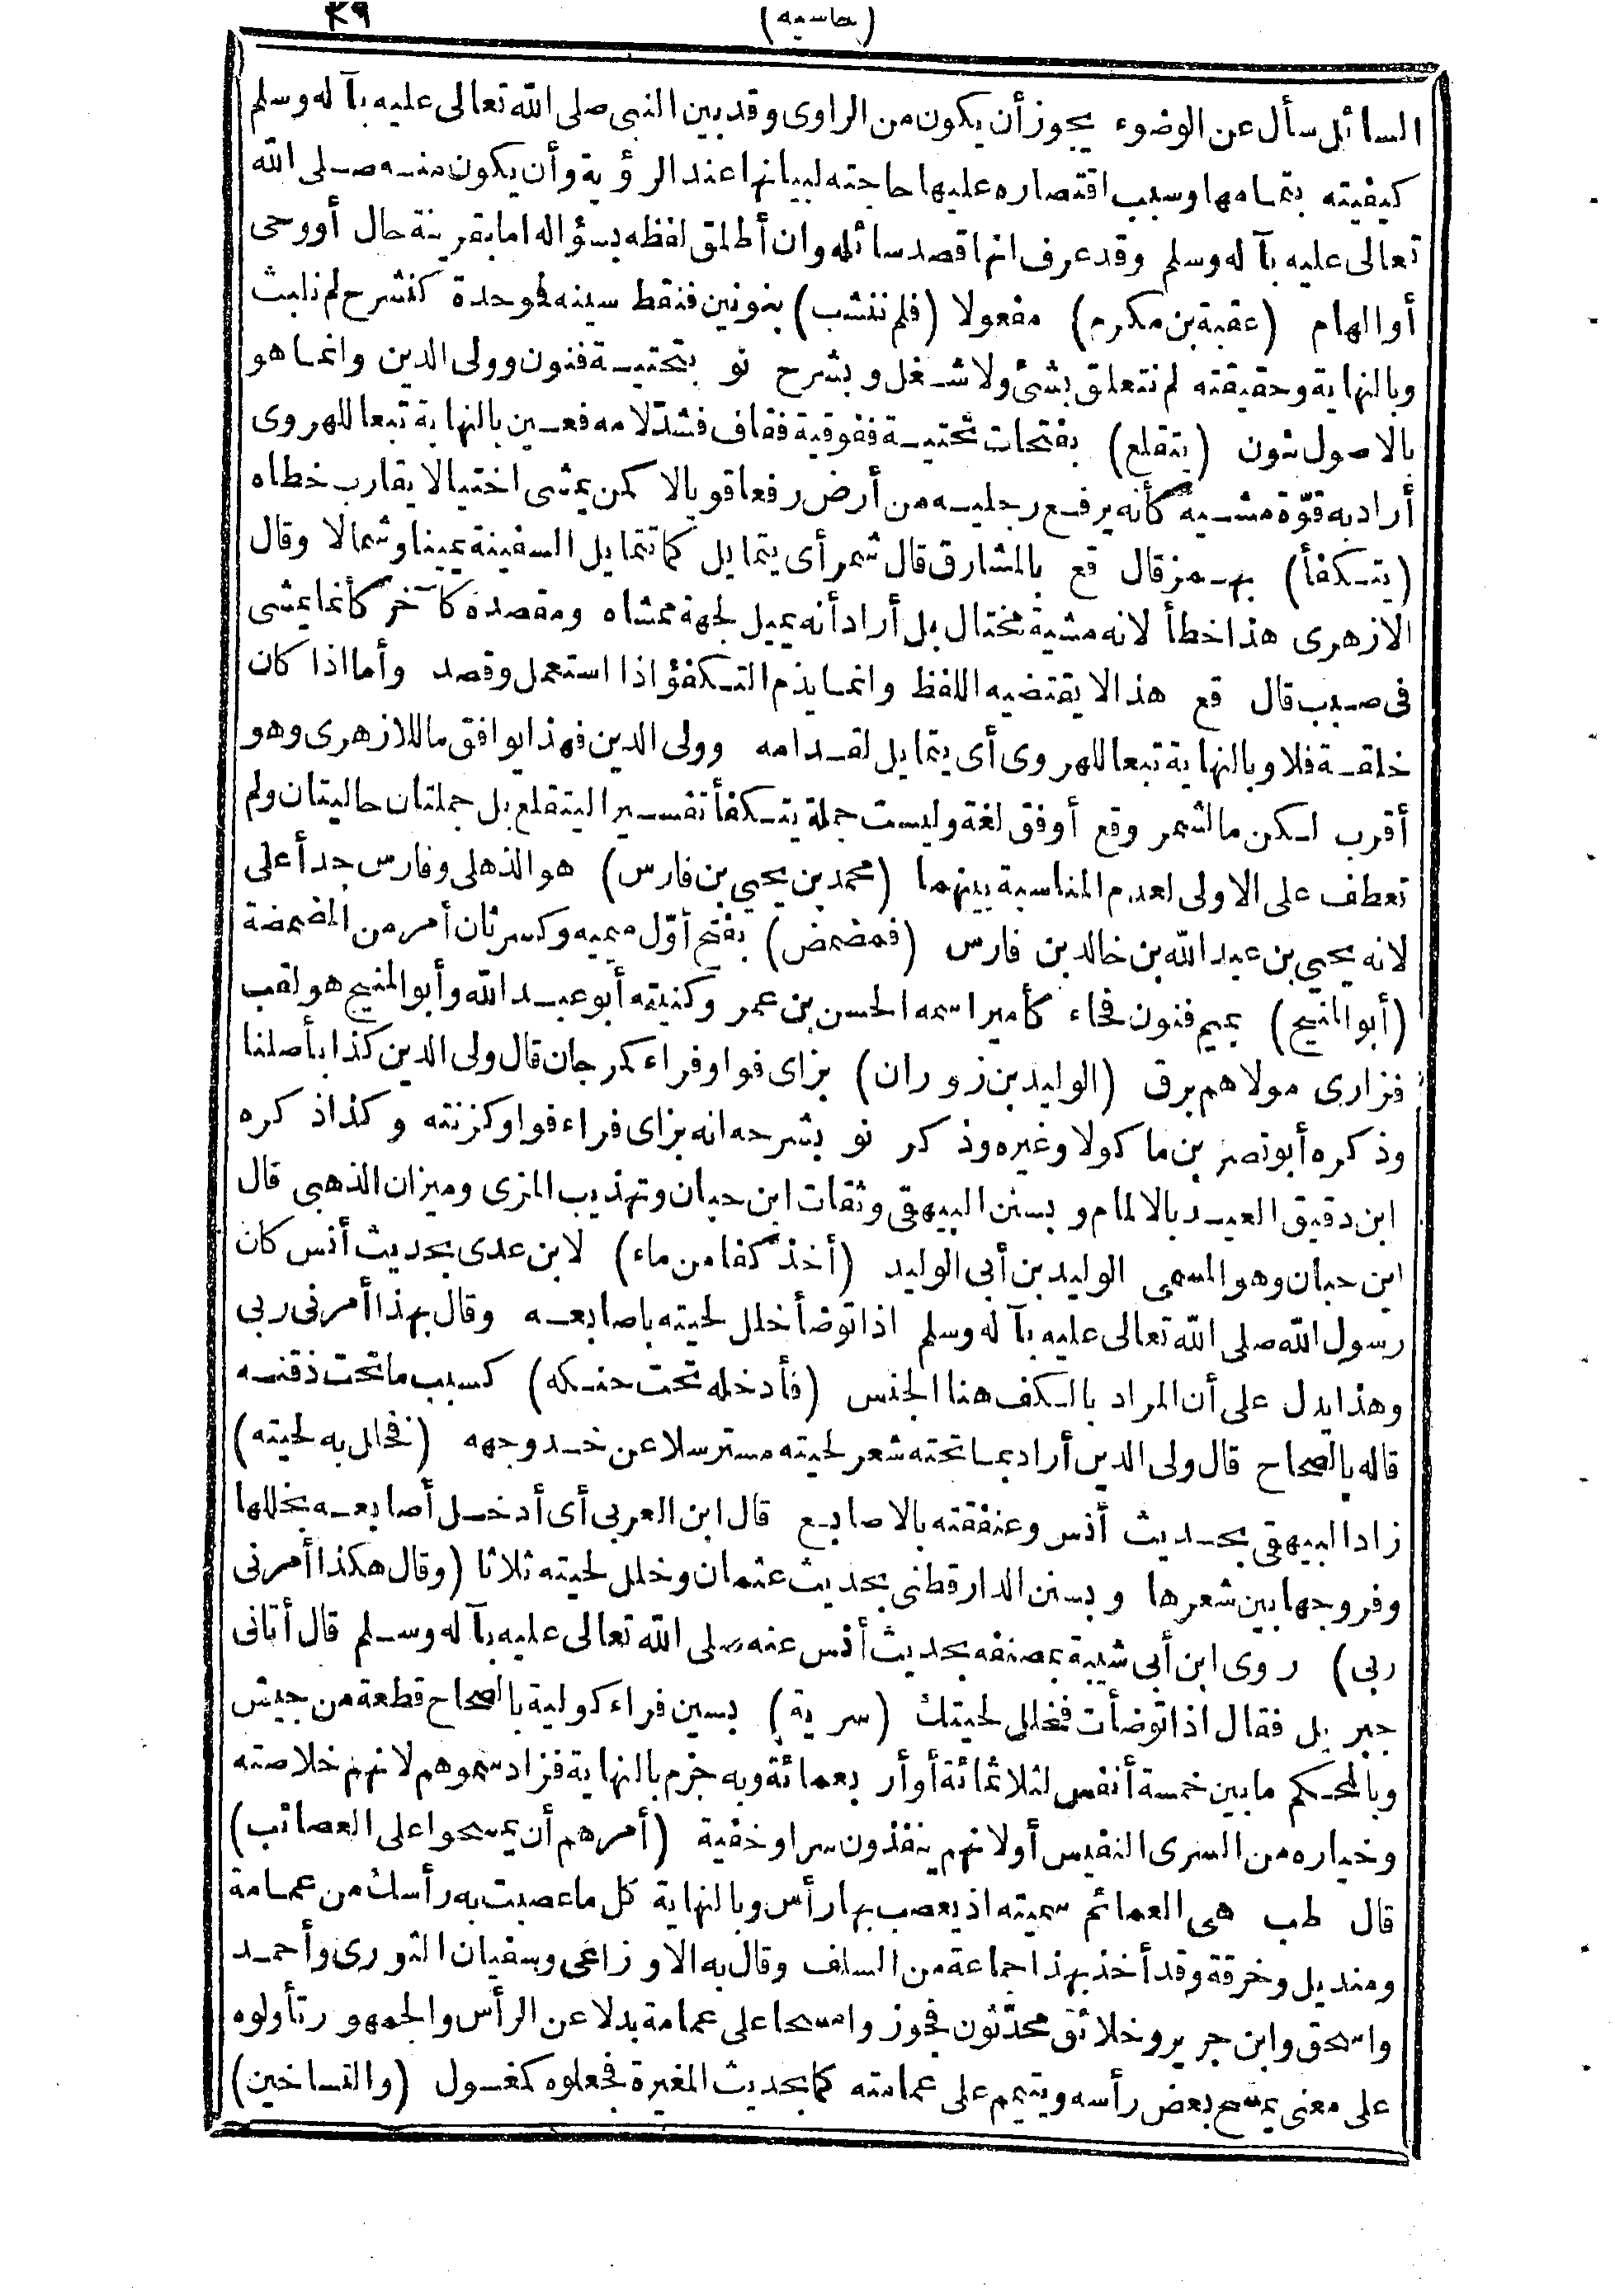 (حاشيه) ٢٩
السائل سأل عن الوضوء يجوز أن يكون من الراوى وقد بين النبى صلى الله تعالى عليه بآله وسلم
كيفيته بتمامها وسبب اقتصاره عليها حاجته لبيانها عند الرؤية وأن يكون منه صلى الله
تعالى عليه بآله وسلم وقد عرف انها قصد سائله وان أطلق لفظه بسؤاله اما بقرينة حال أو وحى
أو الهام (عقبة بن مكرم) مفعولا (فلم ننشب) بنونين فنقط سينه فموحدة كنشرح لم نلبث
وبالنهاية وحقيقته لم نتعلق بشئ ولا شغل وبشرح نو بتحتية فنون وولى الدين وانما هو
بالاصول بنون (يتقلع) بفتحات تحتية ففوقية فقاف فشد لامه فعين بالنهاية تبعا للهروى
أراد به قوّة مشيه كأنه يرفع رجليه من أرض رفعا قويا لا كمن يمشى اختيالا يقارب خطاه
(يتكفأ) بهمز قال قع بالمشارق قال شمر أى يتمايل كما تتمايل السفينة يمينا وشمالا وقال
الازهرى هذا خطأ لانه مشية مختال بل أراد أنه يميل لجهة ممشاه ومقصده كآخر كأنما يمشى
فى صبب قال قع هذا لا يقتضيه اللفظ وانما يذم التكفؤ اذا استعمل وقصد وأما اذا كان
خلقة فلا وبالنهاية تبعا للهروى أى يتمايل لقدامه وولى الدين فهذا يوافق ما للازهرى وهو
أقرب لكن ما لشمر وقع أوفق لغة وليست جملة يتكفأ تفسيرا ليتقلع بل جملتان حاليتان ولم
تعطف على الاولى لعدم المناسبة بينهما (محمد بن يحيى بن فارس) هو الذهلى وفارس جد أعلى
لانه يحيى بن عبد الله بن خالد بن فارس (فمضمض) بفتح أوّل ميميه وكسر ثان أمر من المضمضة
(أبو المنيح) بميم فنون فحاء كأمير اسمه الحسن بن عمر وكنيته أبو عبد الله وأبو المنيح هو لقب
فزارى مولاهم برق (الوليد بن زوران) بزاى فواو فراء كمرجان قال ولى الدين كذا بأصلنا
وذكره أبو نصر بن ماكولا وغيره وذكر نو بشرحه انه بزاى فراء فواو كزنته وكذا ذكره
ابن دقيق العيد بالالمام وبسنن البيهقى وثقات ابن حبان وتهذيب المزى وميزان الذهبى قال
ابن حبان وهو المسمى الوليد بن أبى الوليد (أخذ كفا من ماء) لابن عدى بحديث أنس كان
رسول الله صلى الله تعالى عليه بآله وسلم اذا توضأ خلل لحيته باصابعه وقال بهذا أمرنى ربى
وهذا يدل على أن المراد بالكف هنا الجنس (فأدخله تحت حنكه) كسبب ما تحت ذقنه
قاله بالصحاح قال ولى الدين أراد بما تحته شعر لحيته مسترسلا عن خد وجهه (فخلل به لحيته)
زاد البيهقى بحديث أنس وعنفقته بالاصابع قال ابن العربى أى أدخل أصابعه بخللها
وفروجها بين شعرها وبسنن الدارقطنى بحديث عثمان وخلل لحيته ثلاثا (وقال هكذا أمرنى
ربى) روى ابن أبى شيبة بمصنفه بحديث أنس عنه صلى الله تعالى عليه بآله وسلم قال أتانى
جبريل فقال اذا توضأت فخلل لحيتك (سرية) بسين فراء كولية بالصحاح قطعة من جيش
وبالمحكم ما بين خمسة أنفس لثلاثمائة أو أربعمائة وبه جزم بالنهاية فزاد سموهم لانهم خلاصته
وخياره من السرى النفيس أولانهم ينفذون سرا وخفية (أمرهم أن يمسحوا على العصائب)
قال طب هى العمائم سميته اذ يعصب بها رأس وبالنهاية كل ما عصبت به رأسك من عمامة
ومنديل وخرقة وقد أخذ بهذا جماعة من السلف وقال به الاوزاعى وسفيان الثورى وأحمد
واسحق وابن جرير وخلائق محدّثون فجوزوا مسحا على عمامة بدلا عن الرأس والجمهور تأولوه
على معنى يمسح بعض رأسه ويتمم على عمامته كما بحديث المغيرة فجعلوه كمغسول (والتساخين)